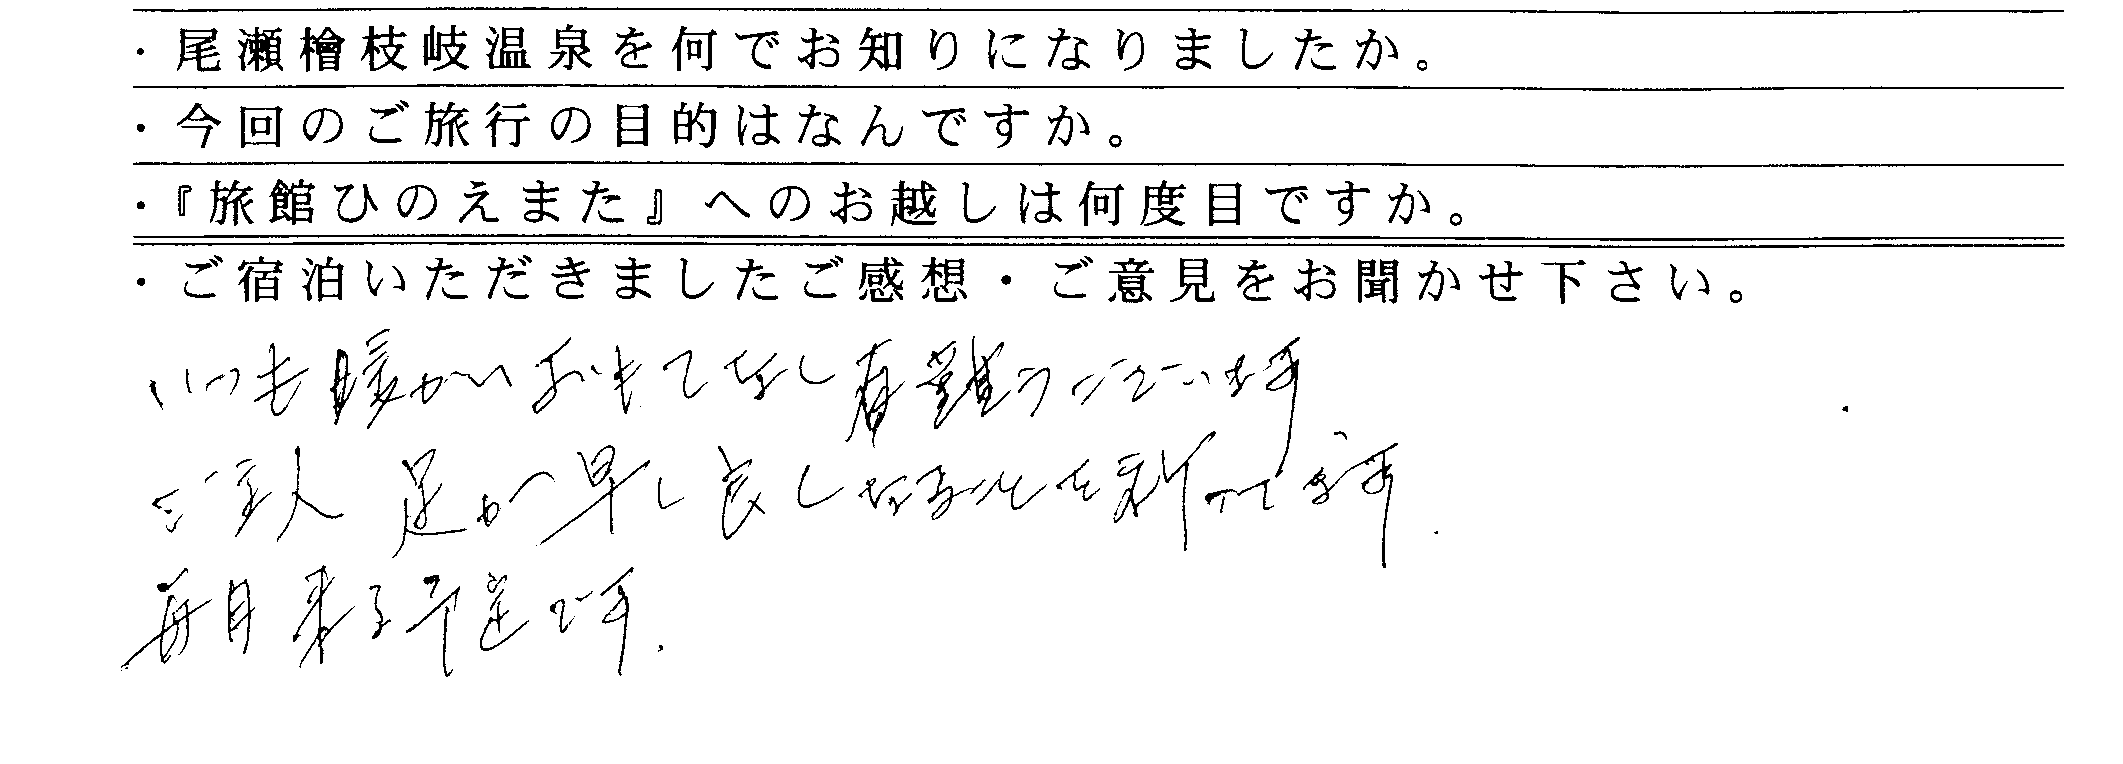 ・尾瀬檜枝岐温泉を何でお知りになりましたか。
・今回のご旅行の目的はなんですか。
・『旅館ひのえまた』へのお越しは何度目ですか。
・ご宿泊いただきましたご感想・ご意見をお聞かせ下さい。
いつも暖かいおもてなし有難うございます
ご主人 足が早く良くなることを祈ってます.
毎月来る予定です.